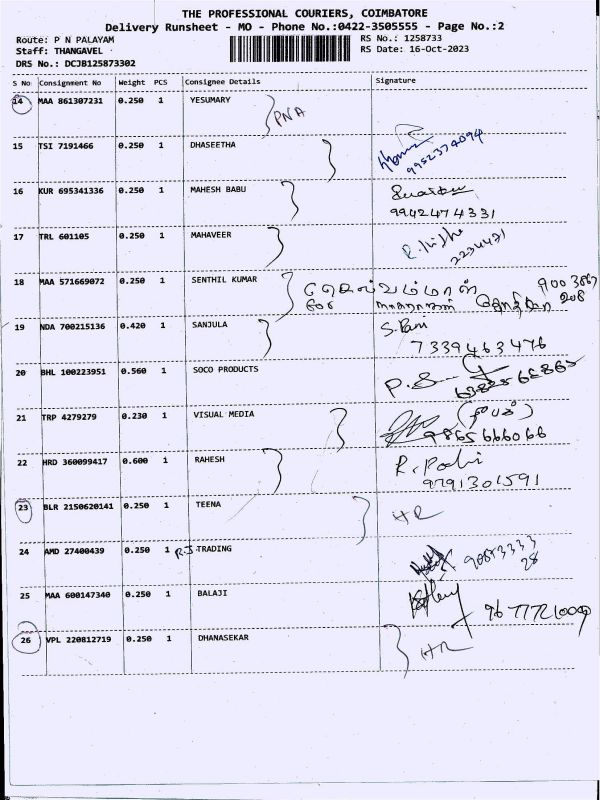 THE PROFESSIONAL COURIERS, COIMBATORE
Delivery Runsheet - MO - Phone No.:0422-3505555 - Page No.:2
Route: P N PALAYAM
RS No.: 1258733
Staff: THANGAVEL
RS Date: 16-Oct-2023
DRS No.: DCJB125873302
S No Consignment No Weight PCS Consignee Details Signature
14 MAA 861307231 0.250 1 YESUMARY PNA
15 TSI 7191466 0.250 1 DHASEETHA
9952374094
16 KUR 695341336 0.250 1 MAHESH BABU
9942474331
17 TRL 601105 0.250 1 MAHAVEER
2234471
18 MAA 571669072 0.250 1 SENTHIL KUMAR செல்வம்மாள்
19 NDA 700215136 0.420 1 SANJULA
7339463476
20 BHL 100223951 0.560 1 SOCO PRODUCTS P.S
21 TRP 4279279 0.230 1 VISUAL MEDIA (தீபக்)
9865666066
22 HRD 360099417 0.600 1 RAHESH
9791301591
23 BLR 2150620141 0.250 1 TEENA HR
24 AMD 27400439 0.250 1 R.J TRADING
25 MAA 600147340 0.250 1 BALAJI
26 VPL 220812719 0.250 1 DHANASEKAR HR